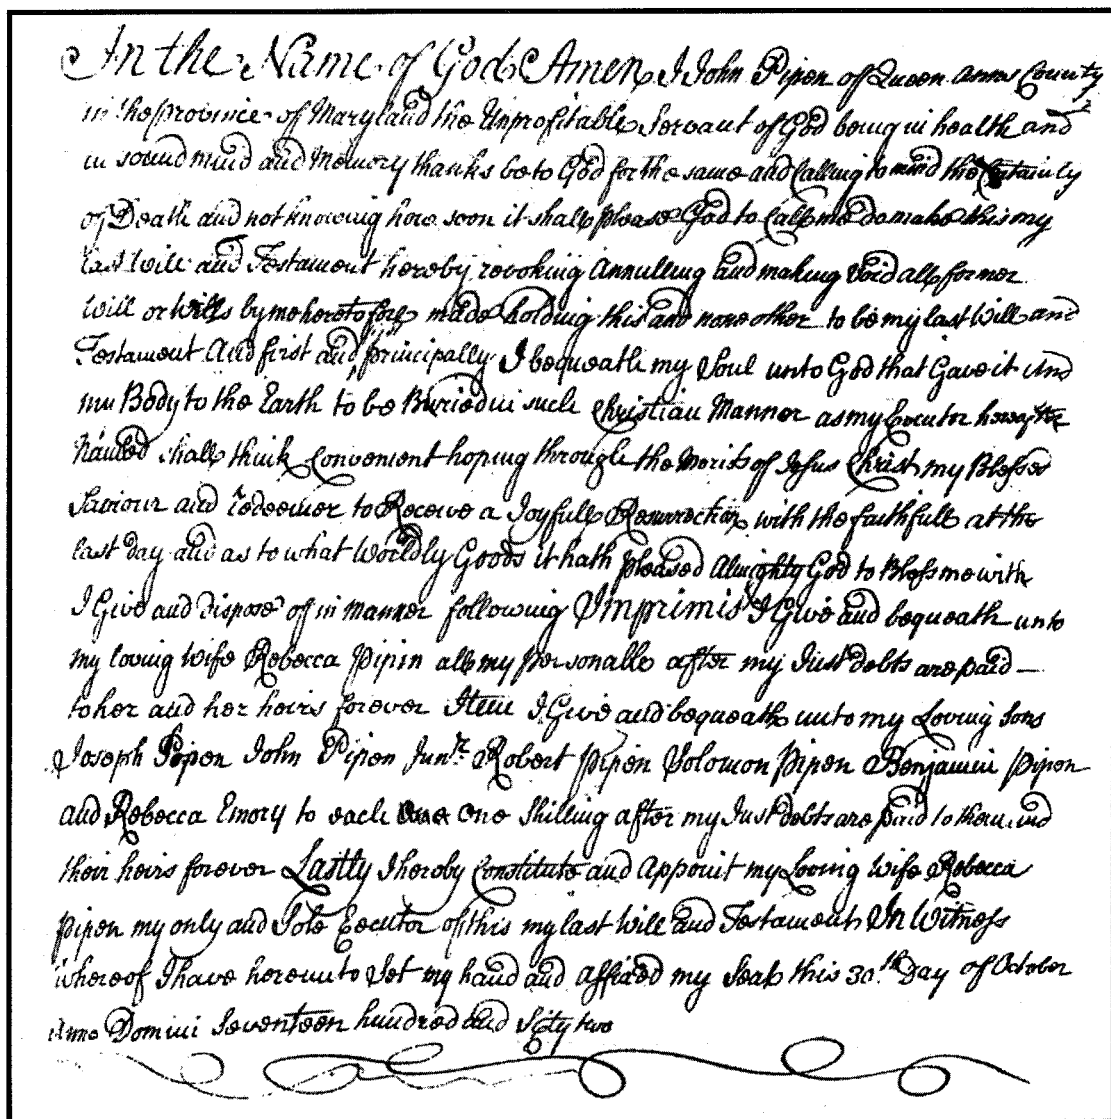 In the Name of God Amen I John Pipen of Queen Anns County
in the province of Maryland the Unprofitable Servant of God being in health and
in sound mind and Memory thanks be to God for the same and Calling to mind the Certainty
of Death and not knowing how soon it shall please God to Call me do make this my
last Will and Testament hereby revoking Annulling and making Void all former
will or wills by me heretofore made holding this and none other to be my last Will and
Testament And first and principally I bequeath my Soul unto God that Gave it And
my Body to the Earth to be Buried in such Christian Manner as my Executor hereafter
named shall think Convenient hoping through the Merits of Jesus Christ my Blessed
Saviour and Redeemer to Receive a Joyfull Resurrection with the faithfull at the
last day and as to what Worldly Goods it hath pleased Almighty God to Bless me with
I Give and Dispose of in Manner following Imprimis I Give and bequeath unto
my loving wife Rebecca Pipin all my personalle after my Just debts are paid
to her and her heirs forever Item I Give and bequeath unto my Loving Sons
Joseph Pipen John Pipen Junr. Robert Pipen Solomon Pipen Benjamin Pipen
and Rebecca Emory to each One One Shilling after my Just debts are paid to them and
their heirs forever Lastly I hereby Constitute and Appoint my Loving Wife Rebecca
Pipen my only and Sole Executor of this my last Will and Testament In Witness
whereof I have hereunto Set my hand and affixed my Seal this 30.th Day of October
Anno Domini Seventeen hundred and Sixty two